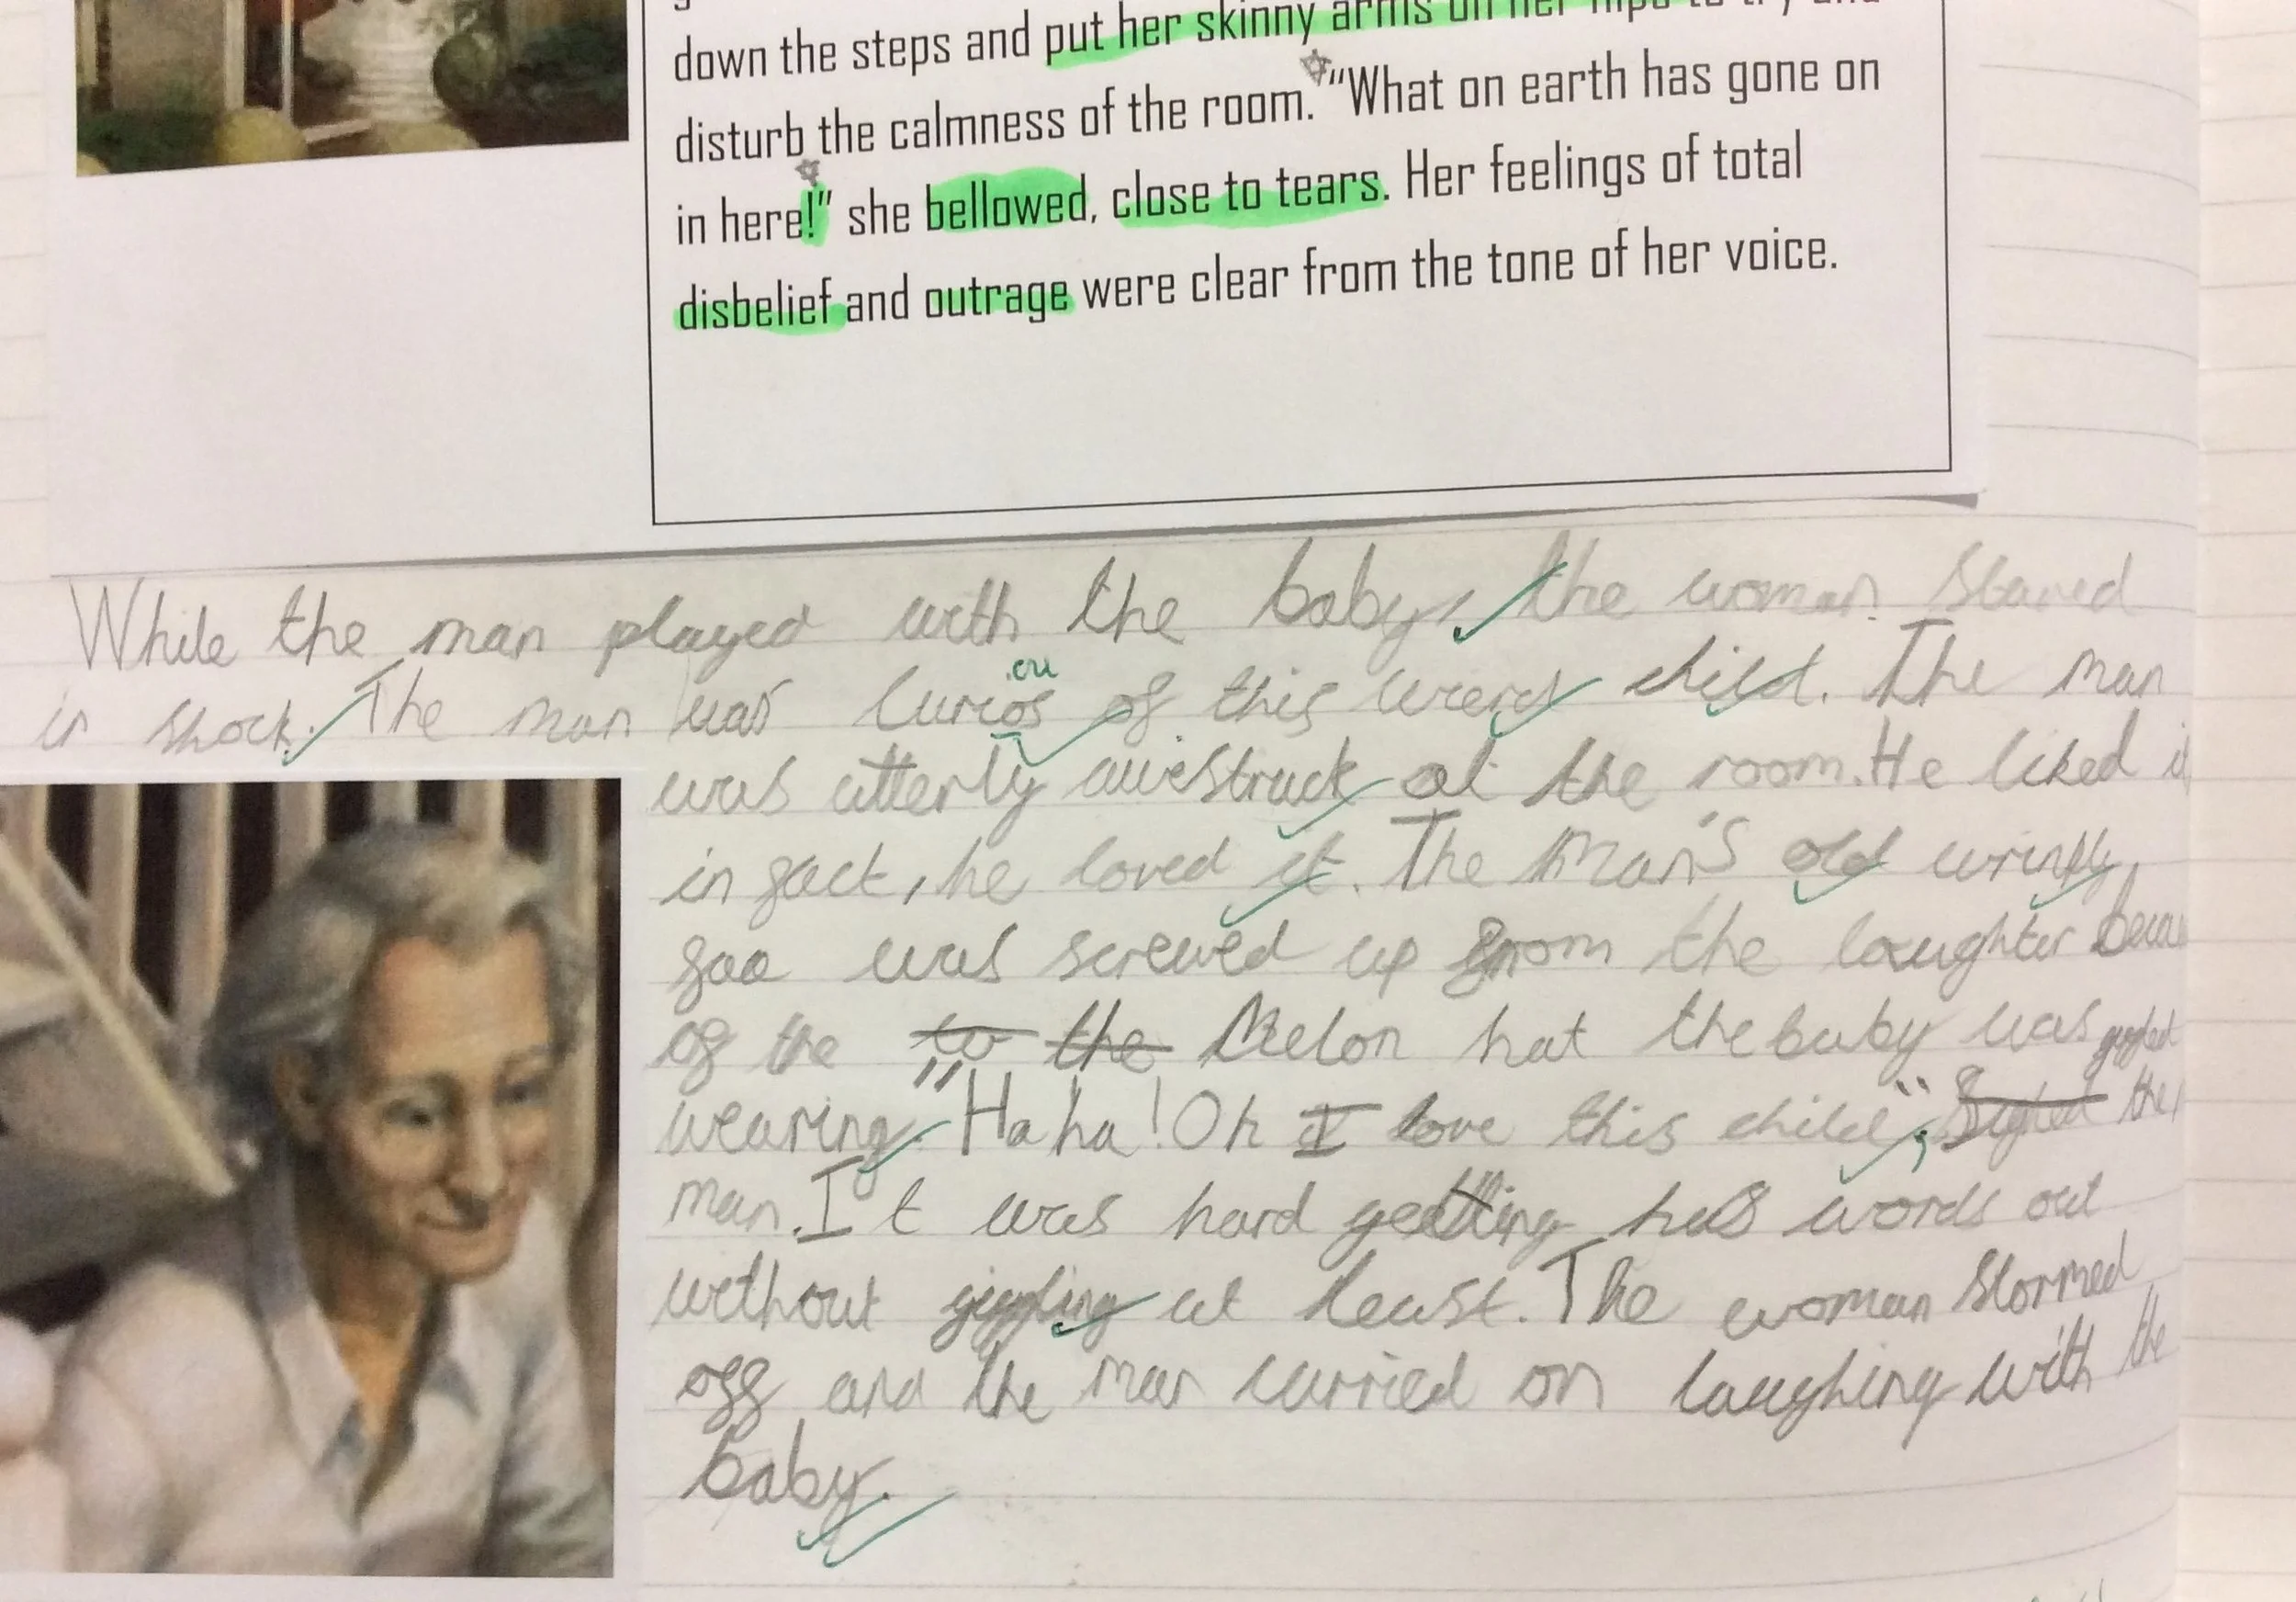 down the steps and put her skinny arms on her hips to try and
disturb the calmness of the room. "What on earth has gone on
in here!" she bellowed, close to tears. Her feelings of total
disbelief and outrage were clear from the tone of her voice.
While the man played with the baby, the woman stared
in shock. The man was curios of this wierd child. The man
ou
was utterly awestruck at the room. He liked it
in fact, he loved it. The Man's old wrinkly,
was screwed up from the laughter
of the to the Melon hat the baby was
wearing. "Ha ha! Oh I love this child", the
man. It was hard getting his words out
without giggling at least. The woman stormed
off and the man carried on laughing with the
baby.